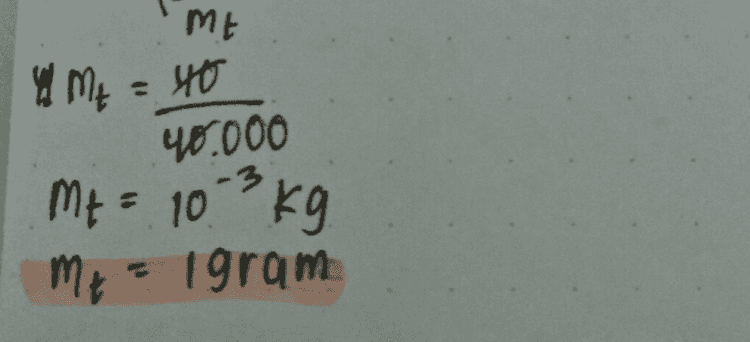 mt
mt = 40
40.000
mt = 10⁻³ kg
mt = 1 gram